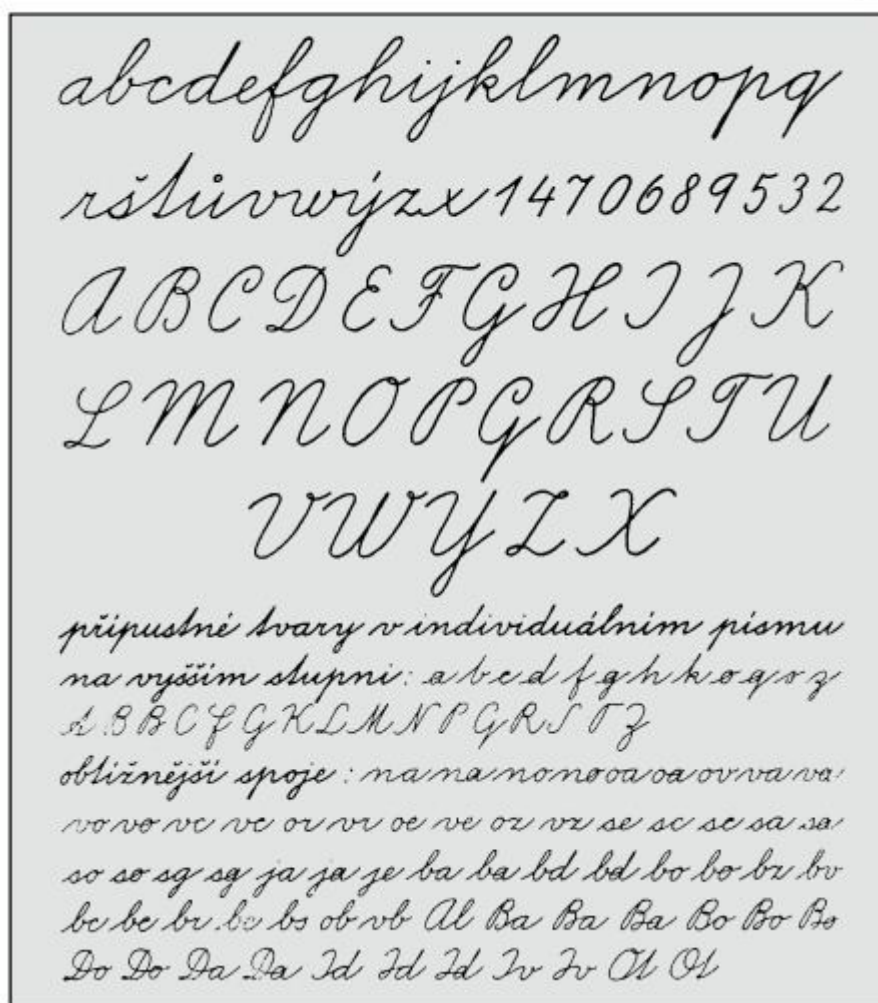 abcdefghijklmnopq
rštůvwýzx1470689532
A B C D E F G H I J K
L M N O P Q R S T U
V W Y Z X
přípustné tvary v individuálním písmu
na vyšším stupni: a b c d f g h k o q s z
A B B C F G K L M N P Q R S T Z
obtížnější spoje: na na no no oa oa ov va va
vo vo vc vc or vr oe ve oz vz se sc sc sa sa
so so sg sg ja ja je ba ba bd bd bo bo bz bv
bc be br bs ob vb Al Ba Ba Ba Bo Bo Bo
Do Do Da Da Id Jd Jd Iv Iv Ot Ot